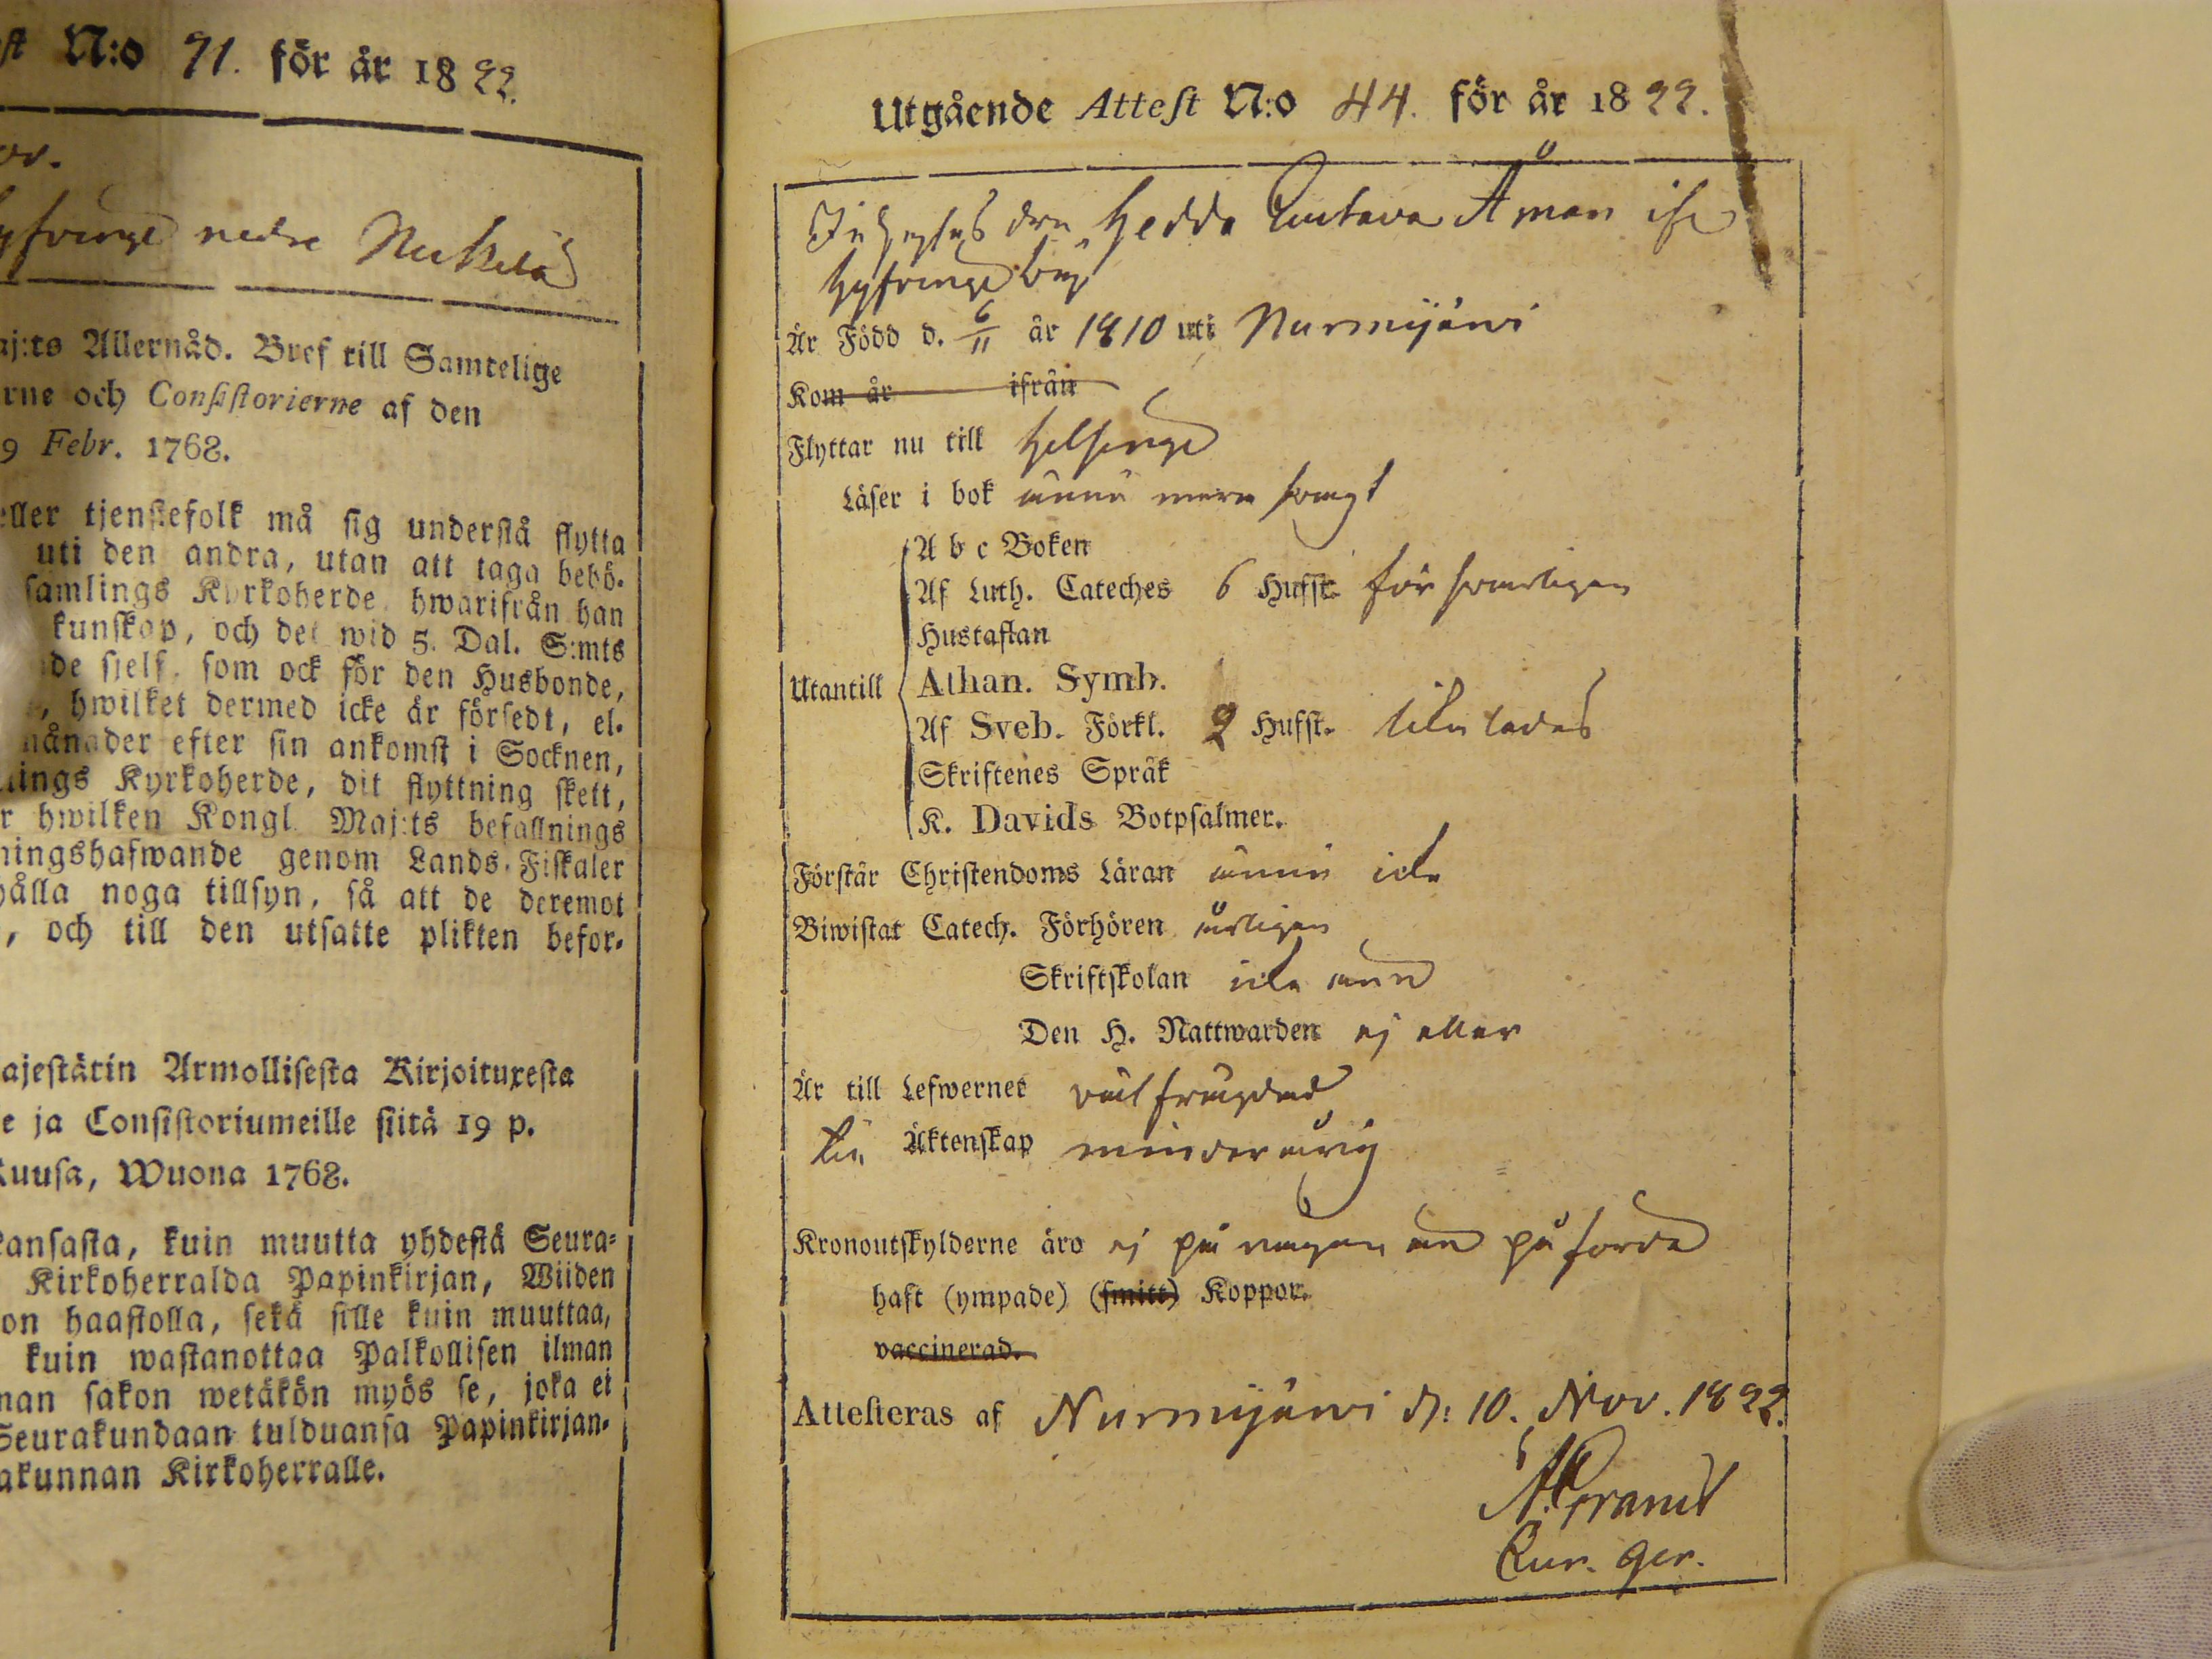 N:o 91. för år 1822.
ov.
nedre Nukula
aj:ts Allernåd. Bref till Samtelige
rne och Consistorierne af den
9 Febr. 1768.
eller tjenstefolk må sig understå flytta
uti den andra, utan att taga behö-
samlings Kyrkoherde, hwarifrån han
kunskap, och det wid 5. Dal. S:mts
de sjelf, som ock för den Husbonde,
, hwilket dermed icke är försedt, el-
månader efter sin ankomst i Socknen,
lings Kyrkoherde, dit flyttning skett,
r hwilken Kongl. Maj:ts befallnings
ningshafwande genom Lands-Fiskaler
hålla noga tillsyn, så att de deremot
, och till den utsatte plikten befor-
ajestätin Armollisesta Kirjoituxesta
e ja Consistoriumeille siitä 19 p.
Kuusa, Wuona 1768.
kansasta, kuin muutta yhdestä Seura-
Kirkoherralda Papinkirjan, Wiiden
on haastolla, sekä sille kuin muuttaa,
kuin wastanottaa Palkollisen ilman
man sakon wetäkön myös se, joka ei
Seurakundaan tulduansa Papinkirjan-
akunnan Kirkoherralle.
Utgående Attest N:o 44. för år 1822.
den Hedda Gustava Åman ifr
Hyfvinge by
Är Född d. 6/11 år 1810 uti Nurmijärvi
Kom år ifrån
Flyttar nu till Helsinge
Läser i bok ännu mera swagt
A b c Boken
Af Luth. Cateches 6 Hufst. försvarligen
Hustaflan
Utantill Athan. Symb.
Af Sveb. Förkl. 2 Hufst. likaledes
Skriftenes Språk
K. Davids Botpsalmer.
Förstår Christendoms Läran ännu icke
Biwistat Catech. Förhören årligen
Skriftskolan icke ännu
Den H. Nattwarden ej eller
Är till Lefwernet wälfrägdad
Till Äktenskap minderårig
Kronoutskylderne äro ej på någon än påförda
haft (ympade) (smitt) Koppor.
vaccinerad.
Attesteras af Nurmijärvi d: 10. Nov. 1822.